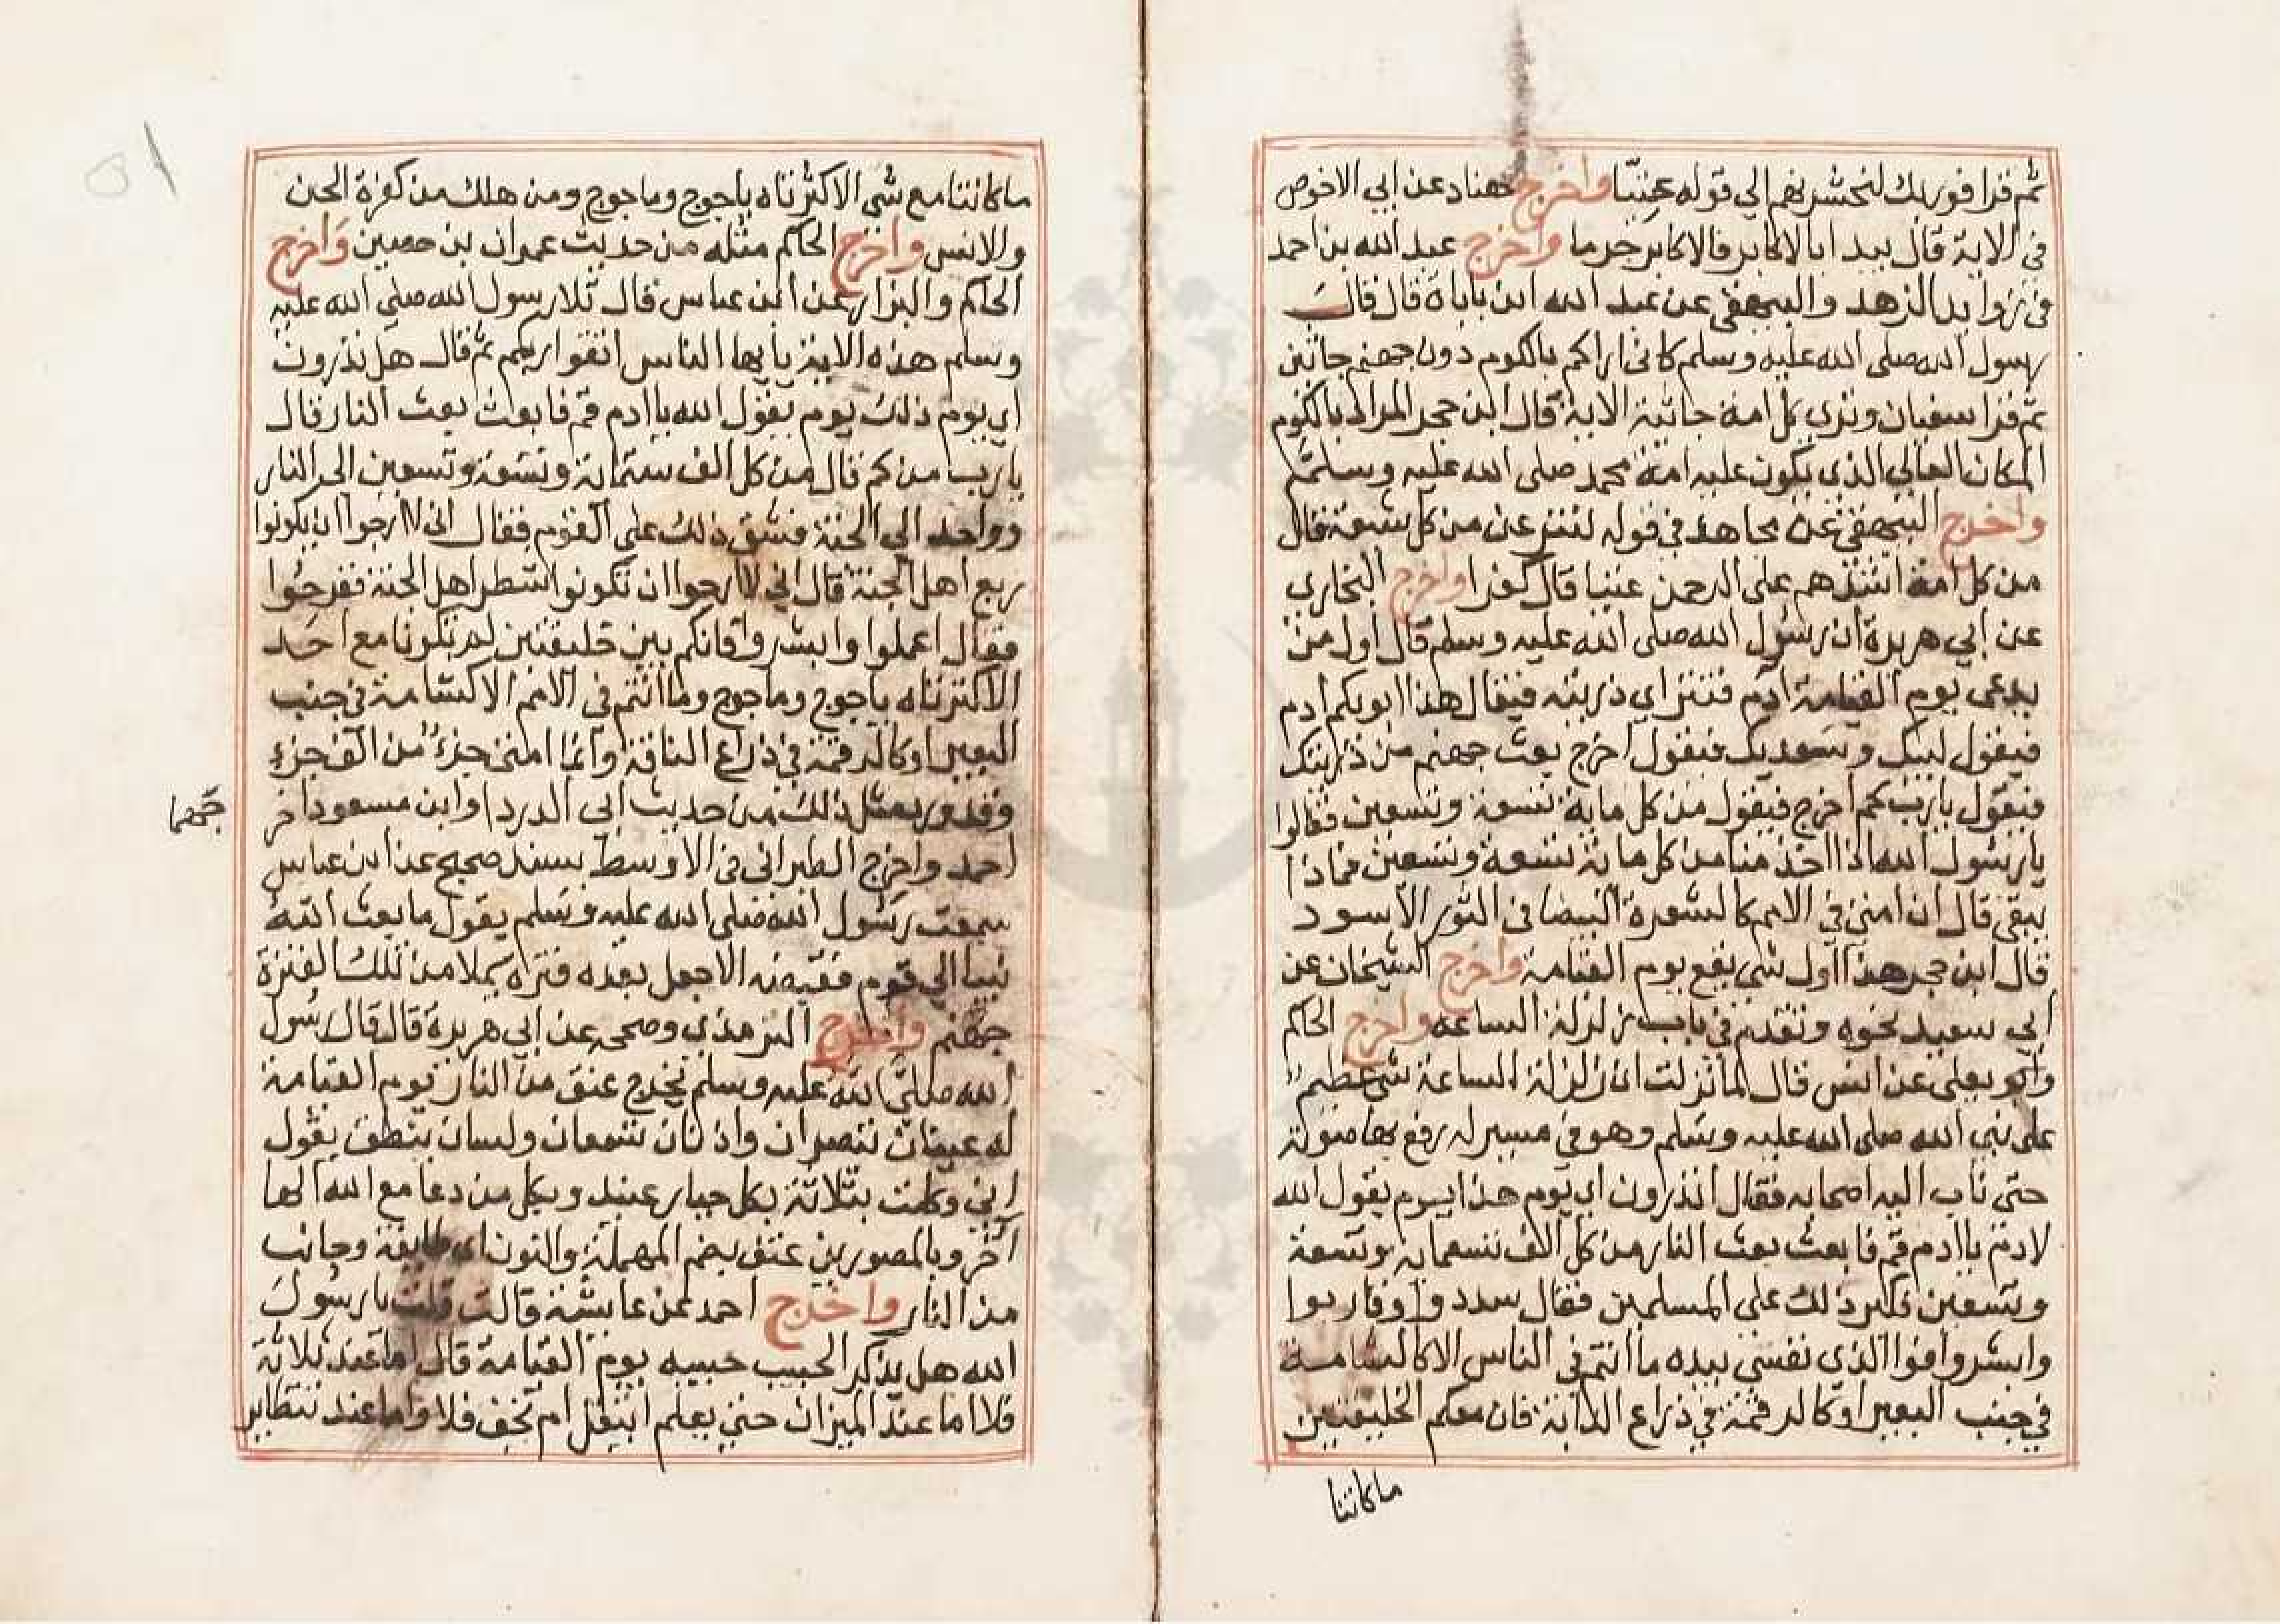 ثم قرا فوربك لنحشرنهم الى قوله عتيا واخرج هناد عن ابي الاحوص
في الاية قال يبدا بالاكابر فالاكابر جرما واخرج عبد الله بن احمد
في زوايد الزهد والبيهقي عن عبد الله ابن باباه قال قال
رسول الله صلى الله عليه وسلم كاني اراكم بالكوم دون جهنم جاثين
ثم قرا سفيان وترى كل امة جاثية الاية قال ابن حجر المراد بالكوم
المكان العالي الذي يكون عليه امة محمد صلى الله عليه وسلم
واخرج البيهقي عن مجاهد في قوله لننزعن من كل شيعة قال
من كل امة اشدهم على الرحمن عتيا قال كفرا واخرج البخاري
عن ابي هريرة ان رسول الله صلى الله عليه وسلم قال اول من
يدعى يوم القيامة ادم فتتراي ذريته فيقال هذا ابوكم ادم
فيقول لبيك وسعديك فيقول اخرج بعث جهنم من ذريتك
فيقول يا رب كم اخرج فيقول من كل ماية تسعة وتسعين فقالوا
يا رسول الله اذا اخذ منا من كل ماية تسعة وتسعين فماذا
يبقى قال ان امتي في الامم كالشعرة البيضا في الثور الاسود
قال ابن حجر هذا اول شي يقع يوم القيامة واخرج الشيخان عن
ابي سعيد نحوه وتقدم في باب زلزلة الساعة واخرج الحاكم
وابو يعلى عن انس قال لما نزلت ان زلزلة الساعة شي عظيم
على نبي الله صلى الله عليه وسلم وهو في مسير له رفع بها صوته
حتى ثاب اليه اصحابه فقال اتدرون اي يوم هذا يوم يقول الله
لادم يا ادم قم فابعث بعث النار من كل الف تسعماية وتسعة
وتسعين فكبر ذلك على المسلمين فقال سددوا وقاربوا
وابشروا فوا الذي نفسي بيده ما انتم في الناس الا كالشامة
في جنب البعير او كالرقمة في ذراع الدابة فان معكم الخليقتين
ما كانتا
ما كانتا مع شي الا كثرتاه ياجوج وماجوج ومن هلك من كفرة الجن
والانس واخرج الحاكم مثله من حديث عمران بن حصين واخرج
الحاكم والبزار عن ابن عباس قال تلا رسول الله صلى الله عليه
وسلم هذه الاية يا يها الناس اتقوا ربكم ثم قال هل تدرون
اي يوم ذلك يوم يقول الله يا ادم قم فابعث بعث النار قال
يا رب من كم قال من كل الف ستماية وتسعة وتسعين الى النار
وواحد الى الجنة فشق ذلك على القوم فقال اني لاارجوا ان يكونوا
ربع اهل الجنة قال اني لاارجوا ان تكونوا شطر اهل الجنة ففرحوا
فقال اعملوا وابشروا فانكم بين خليقتين لم تكونا مع احد
الا كثرتاه ياجوج وماجوج وما انتم في الامم الا كشامة في جنب
البعير او كالرقمة في ذراع الناقة وانما امتي جزء من الف جزء
وقد ورد مثل ذلك من حديث ابي الدردا وابن مسعود اخر
جهما
احمد واخرج الطبراني في الاوسط بسند صحيح عن ابن عباس
سمعت رسول الله صلى الله عليه وسلم يقول ما بعث الله
نبيا الى قوم فقبضه الا جعل بعده فترة يملا من تلك الفترة
جهنم واخرج الترمذي وصححه عن ابي هريرة قال قال رسول
الله صلى الله عليه وسلم تخرج عنق من النار يوم القيامة
له عينان تبصران واذنان تسمعان ولسان ينطق يقول
اني وكلت بثلاثة بكل جبار عنيد وبكل من دعا مع الله الها
آخر وبالمصورين عنق بضم المهملة والنون اي طايفة وجانب
من النار واخرج احمد عن عايشة قالت قلت يا رسول
الله هل يذكر الحبيب حبيبه يوم القيامة قال اما عند ثلاثة
فلا اما عند الميزان حتى يعلم ايثقل ام يخف فلا واما عند تتطاير